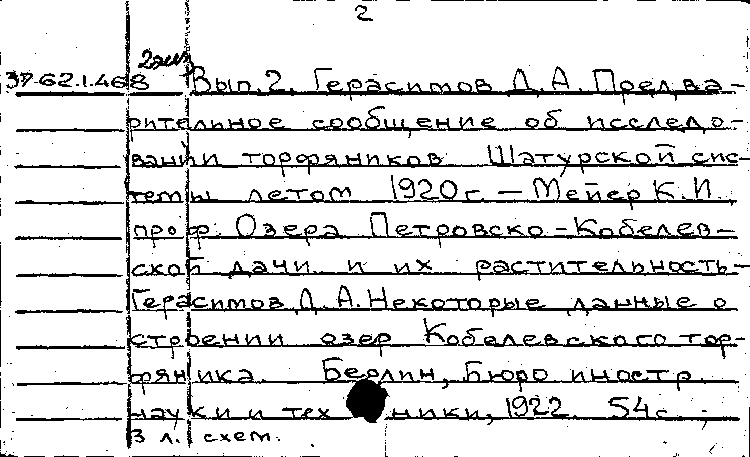 2
2 экз
37-62.1.468 Вып. 2. Герасимов Д.А. Предва-
рительное сообщение об исследо-
вании торфяников Шатурской сис-
темы летом 1920 г. — Мейер К.И.,
проф. Озера Петровско-Кобелев-
ской дачи и их растительность-
Герасимов Д.А. Некоторые данные о
строении озер Кобелевского тор-
фяника. Берлин, Бюро иностр.
науки и техники, 1922. 54 с.;
3 л. схем.